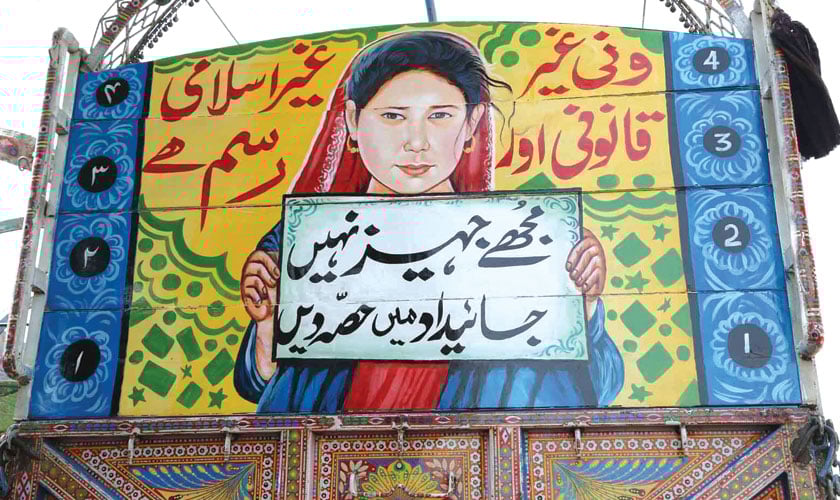 ونی غیر
قانونی اور
غیر اسلامی
رسم ھے
مجھے جہیز نہیں
جائیداد میں حصّہ دیں
4
3
2
1
۴
۳
۲
۱